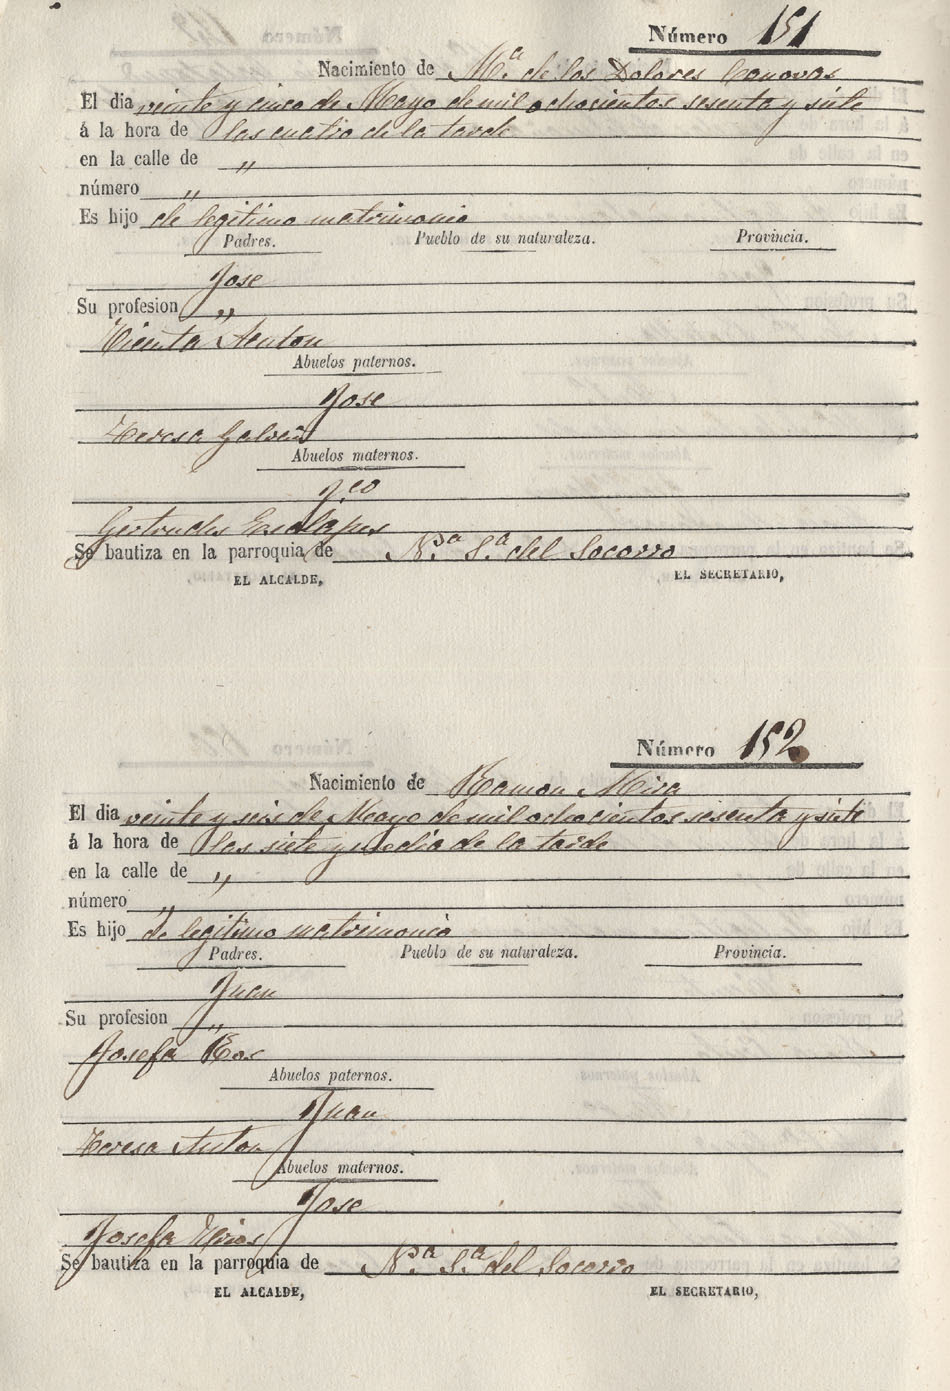 Número 151
Nacimiento de Mª de los Dolores Canovas
El dia veinte y cinco de Mayo de mil ochocientos sesenta y siete
á la hora de las cuatro de la tarde
en la calle de "
número "
Es hijo de legitimo matrimonio
Padres. Pueblo de su naturaleza. Provincia.
Jose
Su profesion "
Vicenta Anton
Abuelos paternos.
Jose
Teresa Galvañ
Abuelos maternos.
Fco
Gertrudis
Se bautiza en la parroquia de Nª Sª del Socorro
EL ALCALDE, EL SECRETARIO,
Número 152
Nacimiento de Ramon Mira
El dia veinte y seis de Mayo de mil ochocientos sesenta y siete
á la hora de las siete y media de la tarde
en la calle de "
número "
Es hijo de legitimo matrimonio
Padres. Pueblo de su naturaleza. Provincia.
Juan
Su profesion "
Josefa
Abuelos paternos.
Juan
Teresa Anton
Abuelos maternos.
Jose
Josefa
Se bautiza en la parroquia de Nª Sª del Socorro
EL ALCALDE, EL SECRETARIO,